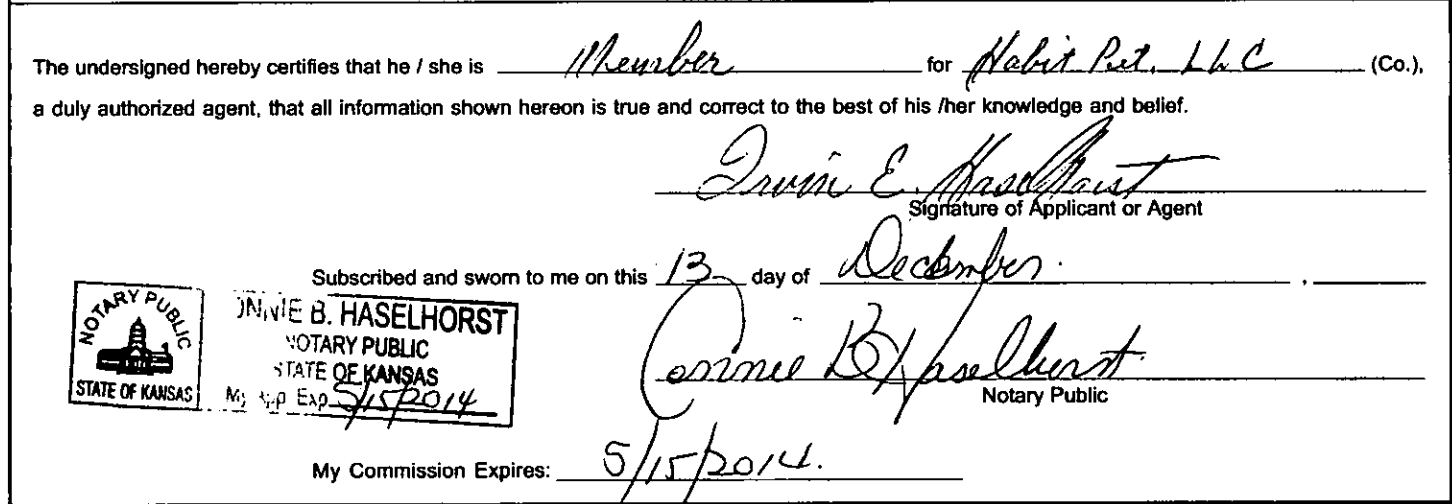 The undersigned hereby certifies that he / she is Member for Habit Pet. LLC (Co.),
a duly authorized agent, that all information shown hereon is true and correct to the best of his /her knowledge and belief.
Irvin E. Haselhorst
Signature of Applicant or Agent
Subscribed and sworn to me on this 13 day of December. , 
NOTARY PUBLIC
STATE OF KANSAS
ONNIE B. HASELHORST
NOTARY PUBLIC
STATE OF KANSAS
My App Exp 5/15/2014
Connie B Haselhorst
Notary Public
My Commission Expires: 5/15/2014.